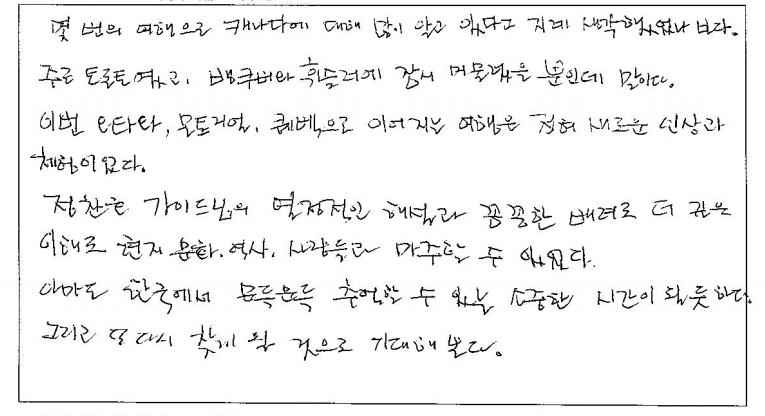 몇 번의 여행으로 캐나다에 대해 많이 알고 있다고 지레 생각했었나 보다.
주로 토론토였고, 밴쿠버와 휘슬러에 잠시 머물렀을 뿐인데 말이다.
이번 오타와, 몬토리얼, 퀘벡으로 이어지는 여행은 전혀 새로운 인상과
체험이었다.
정찬호 가이드님의 열정적인 해설과 꼼꼼한 배려로 더 깊은
이해로 현지 문화, 역사, 사람들과 마주할 수 있었다.
아마도 한국에서 문득문득 추억할 수 있는 소중한 시간이 될 듯하다.
그리고 또 다시 찾게 될 것으로 기대해 본다.